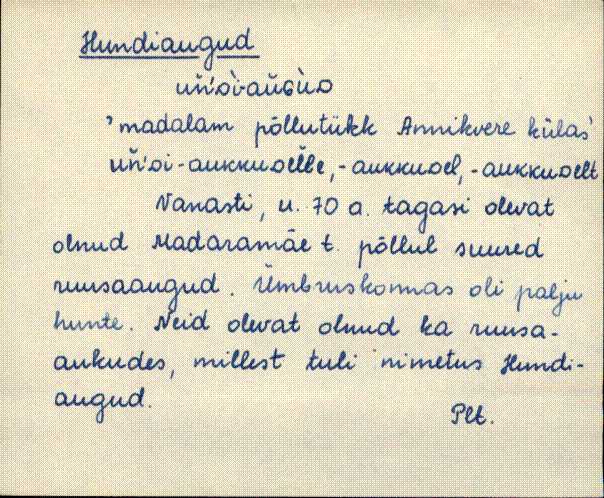 Hundiaugud
uň'ᴅi-aǔɢùᴅ
'madalam põllutükk Annikvere külas'
uň'ᴅi-aukkuᴅelle, -aukkuᴅel, -aukkuᴅelt
Vanasti, u. 70 a. tagasi olevat
olnud Madaramäe t. põllul suured
ruusaaugud. Ümbruskonnas oli palju
hunte. Neid olevat olnud ka ruusa-
aukudes, millest tuli nimetus Hundi-
augud.
Plt.